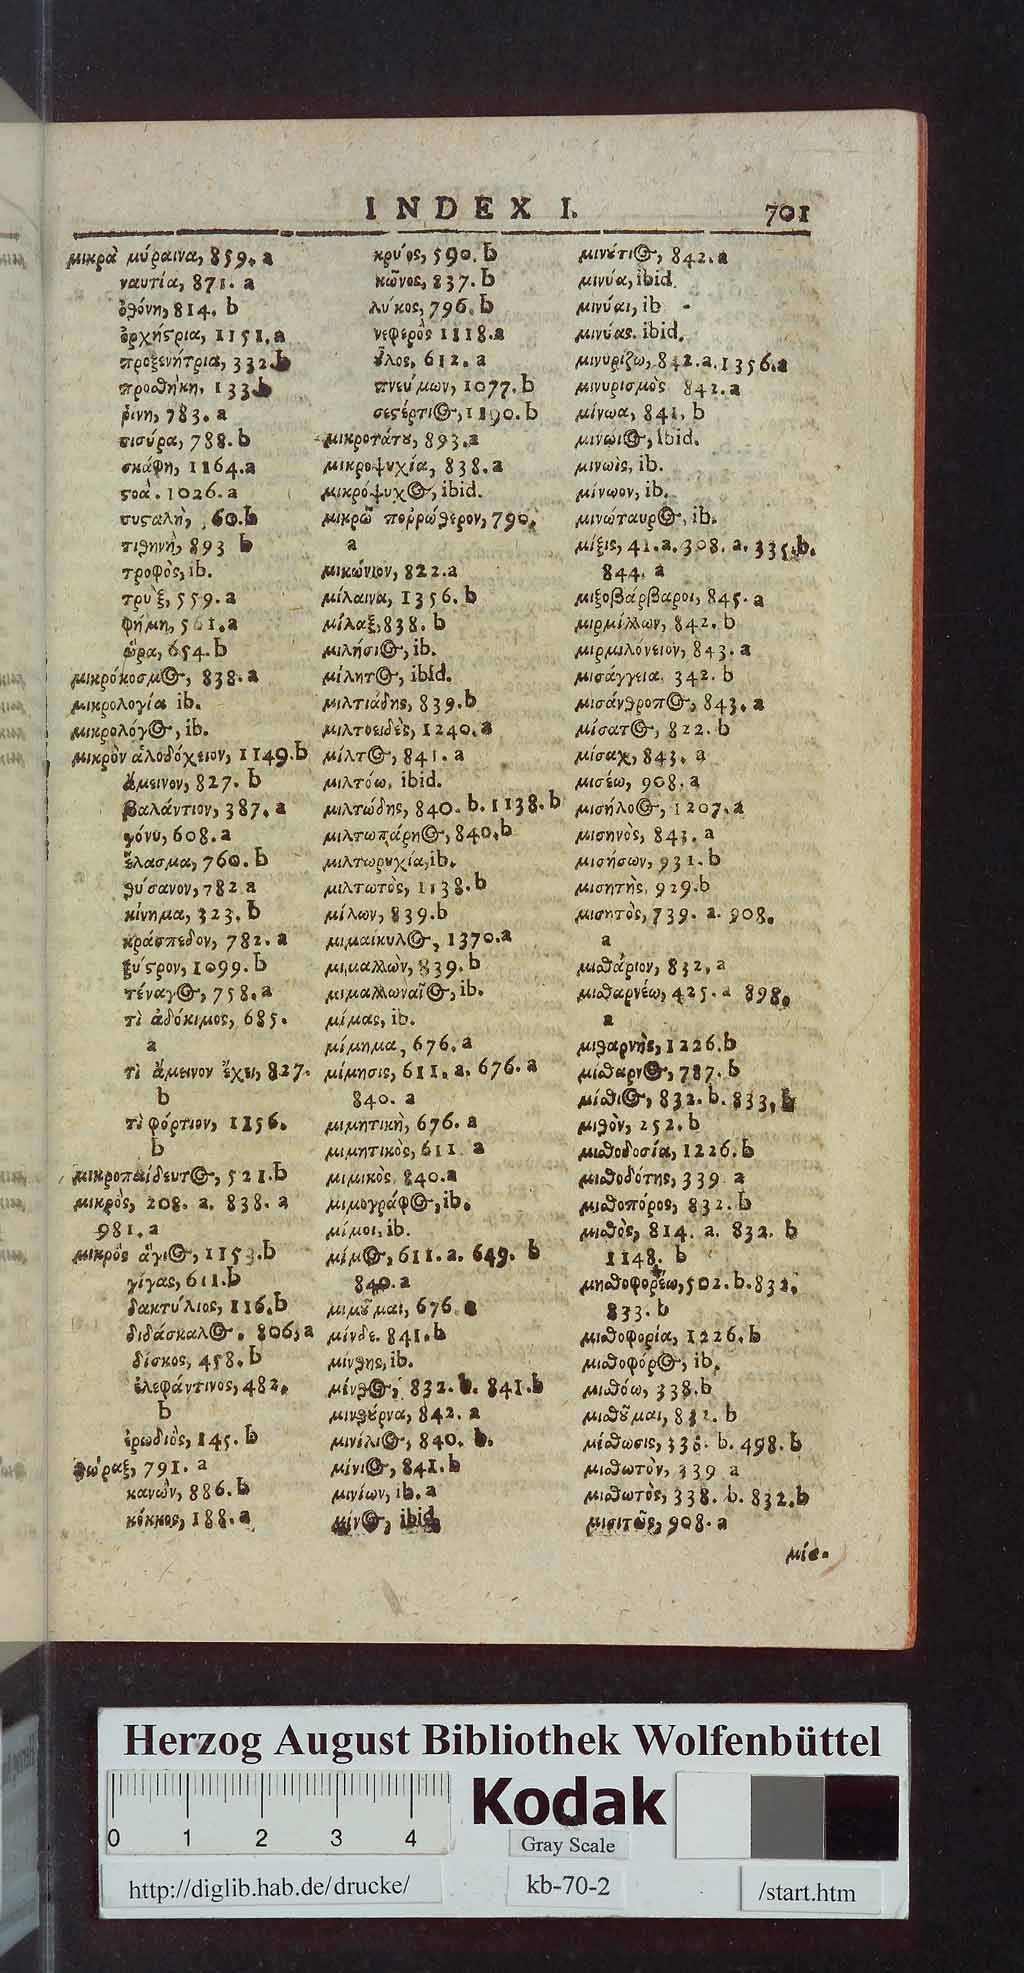 INDEX I. 701
μικρὰ μύραινα, 859. a
ναυτία, 871. a
ὀθόνη, 814. b
ὀρχήστρια, 1151. a
προξενήτρια, 332. b
προσθήκη, 133. b
ῥίνη, 783. a
σισύρα, 788. b
σκάφη, 1164. a
στοὰ. 1026. a
συσταλὴ, 60. b
τιθηνὴ, 893 b
τροφὸς, ib.
τρυξ, 559. a
φήμη, 561. a
ὥρα, 654. b
μικρόκοσμος, 838. a
μικρολογία ib.
μικρολόγος, ib.
μικρὸν ἁλοδόχειον, 1149. b
ἄμεινον, 827. b
βαλάντιον, 387. a
γόνυ, 608. a
ἔλασμα, 760. b
θύσανον, 782 a
κίνημα, 323. b
κράσπεδον, 782. a
ξύστρον, 1099. b
τέναγος, 758. a
τὶ ἀδόκιμος, 685.
a
τὶ ἄμεινον ἔχει, 827.
b
τὶ φόρτιον, 1156.
b
μικροπαίδευτος, 521. b
μικρὸς, 208. a. 838. a
981. a
μικρὸς ἅγιος, 1153. b
γίγας, 611. b
δακτύλιος, 116. b
διδάσκαλος. 806, a
δίσκος, 458. b
ἐλεφάντινος, 482.
b
ἐρωδιὸς, 145. b
θώραξ, 791. a
κανὼν, 886. b
κόκκος, 188. a
κρύος, 590. b
κῶνος, 837. b
λύκος, 796. b
νεφερὸς 1118. a
ὗλος, 612. a
πνεύμων, 1077. b
σεστέρτιος, 1190. b
μικροτάτου, 893. a
μικροψυχία, 838. a
μικρόψυχος, ibid.
μικρῶ πορρώθερον, 790.
a
μικώνιον, 822. a
μίλαινα, 1356. b
μίλαξ, 838. b
μιλήσιος, ib.
μίλητος, ibid.
μιλτιάδης, 839. b
μιλτοειδὲς, 1240. a
μίλτος, 841. a
μιλτόω, ibid.
μιλτώδης, 840. b. 1138. b
μιλτωπάρηος, 840. b
μιλτωρυχία, ib.
μιλτωτὸς, 1138. b
μίλων, 839. b
μιμαίκυλος, 1370. a
μιμαλλὼν, 839. b
μιμαλλωναῖος, ib.
μίμας, ib.
μίμημα, 676. a
μίμησις, 611. a. 676. a
840. a
μιμητικὴ, 676. a
μιμητικὸς, 611 a
μιμικὸς 840. a
μιμογράφος, ib.
μίμοι, ib.
μῖμος, 611. a. 649. b
840. a
μιμοῦμαι, 676. a
μίνδε. 841. b
μίνθης, ib.
μίνθος, 832. b. 841. b
μινθύρνα, 842. a
μινίλιος, 840. b.
μίνιος, 841. b
μινίων, ib. a
μίνος, ibid.
μινούτιος, 842. a
μινύα, ibid.
μινύαι, ib
μινύας. ibid.
μινυρίζω, 842. a. 1356. a
μινυρισμὸς 842. a
μίνωα, 841. b
μινώιος, ibid.
μινωὶς, ib.
μίνωον, ib.
μινώταυρος, ib.
μίξις, 41. a. 308. a. 335. b.
844. a
μιξοβάρβαροι, 845. a
μιρμίλλων, 842. b
μιρμιλόνειον, 843. a
μισάγγεια. 342. b
μισάνθροπος, 843. a
μίσατος, 822. b
μίσαχ, 843. a
μισέω, 908. a
μισήλος, 1207. a
μισηνὸς, 843. a
μισήσων, 931. b
μισητὴς, 929. b
μισητὸς, 739. a. 908.
a
μισθάριον, 832, a
μισθαρνέω, 425. a 898.
a
μισθαρνὴς, 1226. b
μίσθαρνος, 787. b
μίσθιος, 832. b. 833. b
μισθὸν, 252. b
μισθοδοσία, 1226. b
μισθοδότης, 339 a
μισθοπόρος, 832. b
μισθὸς, 814. a. 832. b
1148. b
μησθοφορέω, 502. b. 832.
833. b
μισθοφορία, 1226. b
μισθοφόρος, ib.
μισθόω, 338. b
μισθοῦμαι, 832. b
μίσθωσις, 338. b. 498. b
μισθωτὸν, 339 a
μισθωτὸς, 338. b. 832. b
μισιτῶς, 908. a
μίσ-
Herzog August Bibliothek Wolfenbüttel
0 1 2 3 4
Kodak
Gray Scale
http://diglib.hab.de/drucke/
kb-70-2
/start.htm